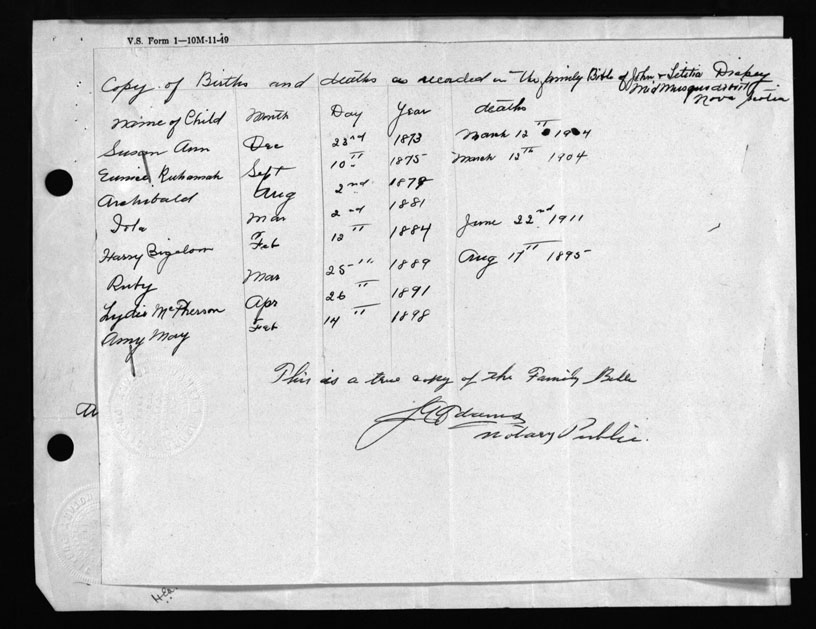 V.S. Form 1—10M-11-49
Copy of Births and deaths as recorded in The family Bible of John & Letitia
Mid Musquodoboit
Nova Scotia
Name of Child Month Day Year deaths
Susan Ann Dec 22nd 1873 March 12 1904
Eunice Ruhamah Sept 10 1875 March 12th 1904
Archibald Aug 2nd 1879
Iola Mar 2nd 1881
Harry Bigelow Feb 12 1884 June 22nd 1911
Ruby Mar 25 1889 Aug 17 1895
Lydia McPherson Apr 26 1891
Amy May Feb 14 1898
This is a true copy of the Family Bible
Adams
Notary Public.